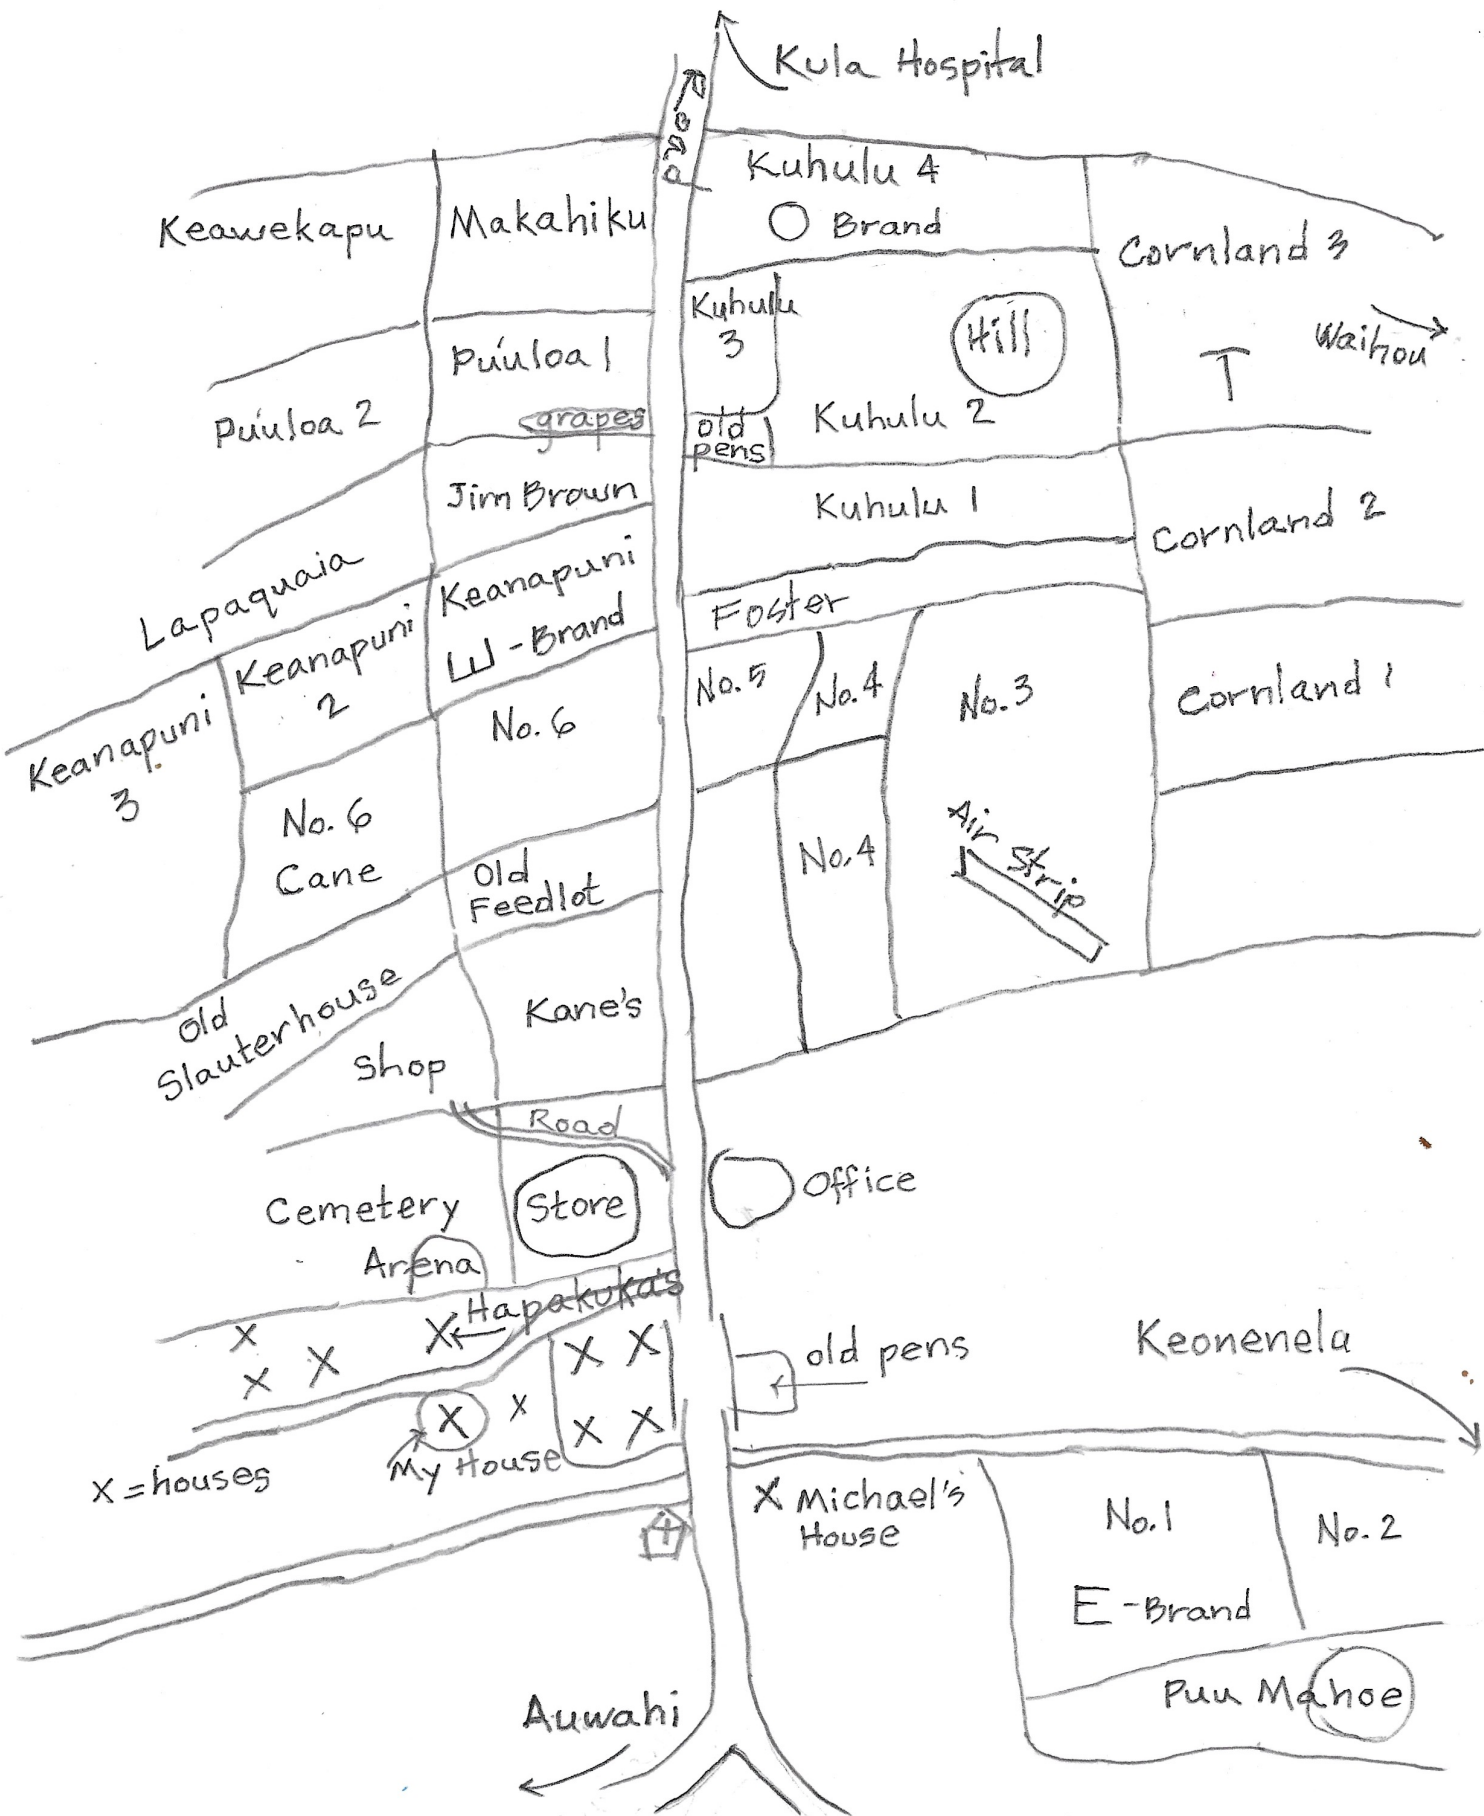 Kula Hospital
Road
Keawekapu
Makahiku
Kuhulu 4
O Brand
Cornland 3
Kuhulu
3
Hill
Waihou
T
Pu'uloa 1
grapes
Pu'uloa 2
old
pens
Kuhulu 2
Jim Brown
Kuhulu 1
Cornland 2
Lapaquaia
Keanapuni
E - Brand
Foster
Keanapuni
2
No. 5
No. 4
No. 3
Cornland 1
Keanapuni
3
No. 6
No. 6
Cane
Old
Feedlot
No. 4
Air Strip
Old
Slauterhouse
Kane's
Shop
Road
Cemetery
Store
Office
Arena
Hapakuka's
X
X
X X
X X
X X
old pens
Keonenela
X
X
X X
My House
X = houses
X Michael's
House
No. 1
No. 2
E - Brand
Puu Mahoe
Auwahi